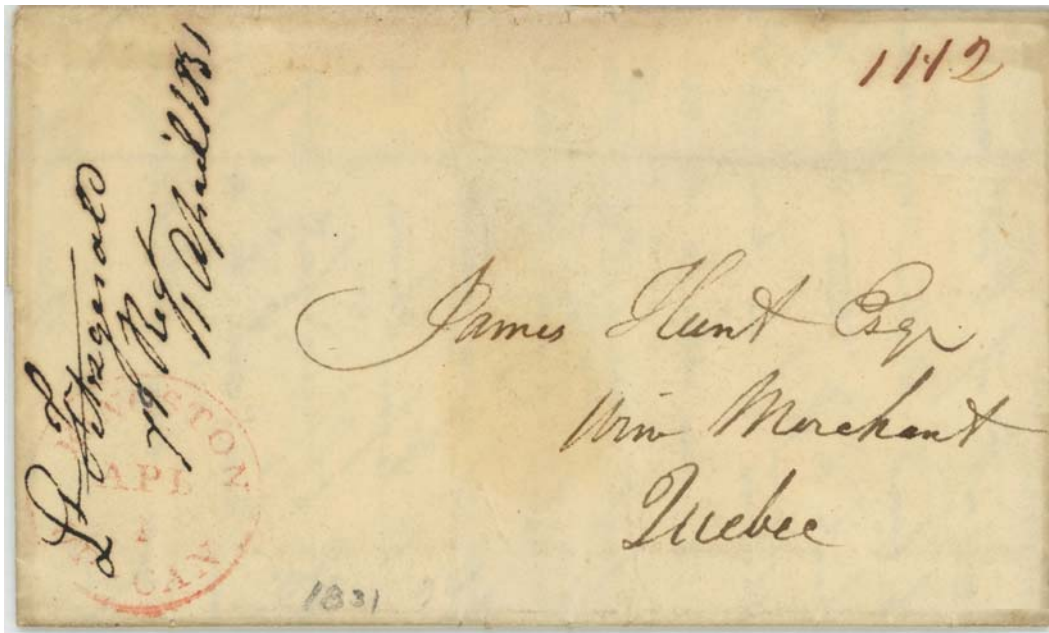 Lt Fitzgerald
79 Regt
April 1831
James Hunt Esqr
Wine Merchant
Quebec
KINGSTON
APL
CAN
1831